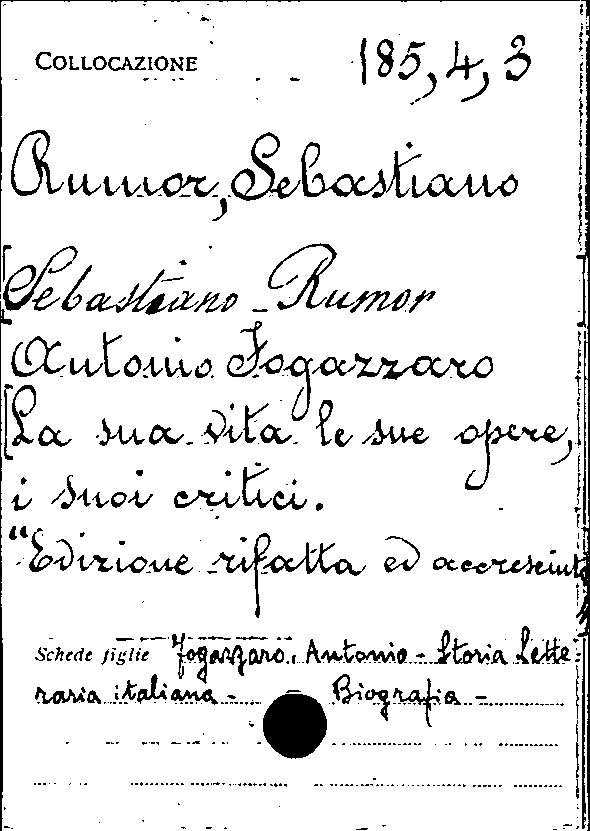 COLLOCAZIONE 185, 4, 3
Rumor, Sebastiano
[Sebastiano - Rumor
Antonio Fogazzaro
[La sua vita le sue opere,
i suoi critici.
"Edizione rifatta ed accresciuta
Schede figlie Fogazzaro, Antonio - Storia Lette-
raria italiana - - Biografia -